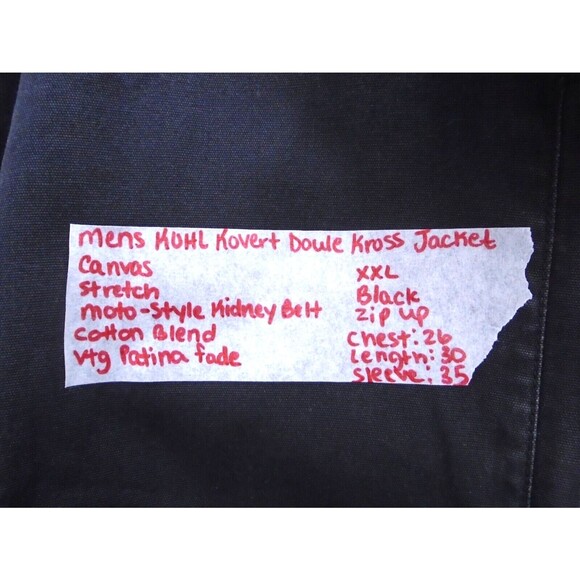 Mens KUHL Kovert Doule Kross Jacket
Canvas
Stretch
Moto-Style Kidney Belt
Cotton Blend
Vtg Patina fade
XXL
Black
Zip up
Chest: 26
Length: 30
Sleeve: 35